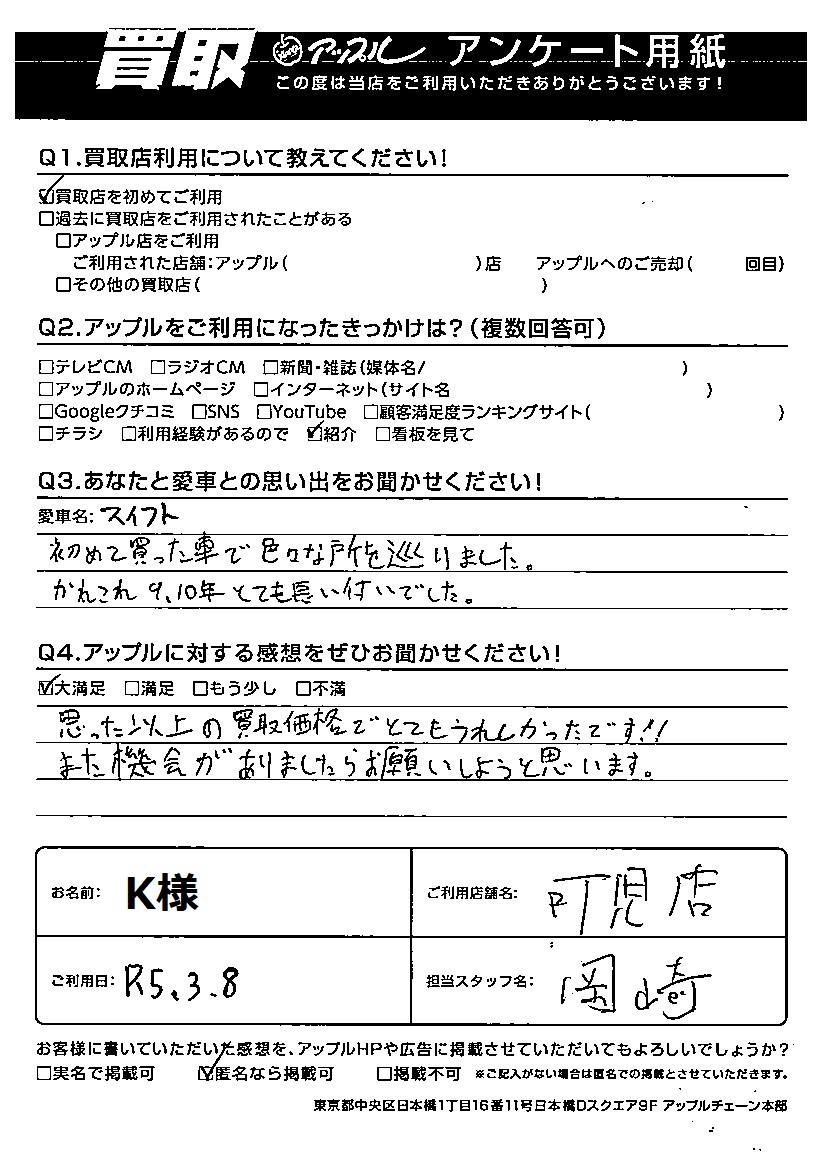 買取 アップル アンケート用紙
この度は当店をご利用いただきありがとうございます!
Q1.買取店利用について教えてください!
☑買取店を初めてご利用
□過去に買取店をご利用されたことがある
□アップル店をご利用
ご利用された店舗:アップル( )店 アップルへのご売却( 回目)
□その他の買取店( )
Q2.アップルをご利用になったきっかけは?(複数回答可)
□テレビCM □ラジオCM □新聞・雑誌(媒体名/ )
□アップルのホームページ □インターネット(サイト名 )
□Googleクチコミ □SNS □YouTube □顧客満足度ランキングサイト( )
□チラシ □利用経験があるので ☑紹介 □看板を見て
Q3.あなたと愛車との思い出をお聞かせください!
愛車名:スイフト
初めて買った車で色々な所を巡りました。
かれこれ9、10年とても長い付いでした。
Q4.アップルに対する感想をぜひお聞かせください!
☑大満足 □満足 □もう少し □不満
思った以上の買取価格でとてもうれしかったです!!
また機会がありましたらお願いしようと思います。
お名前: K様 ご利用店舗名: 可児店
ご利用日: R5.3.8 担当スタッフ名: 岡崎
お客様に書いていただいた感想を、アップルHPや広告に掲載させていただいてもよろしいでしょうか?
□実名で掲載可 ☑匿名なら掲載可 □掲載不可 ※ご記入がない場合は匿名での掲載とさせていただきます。
東京都中央区日本橋1丁目16番11号日本橋Dスクエア9F アップルチェーン本部